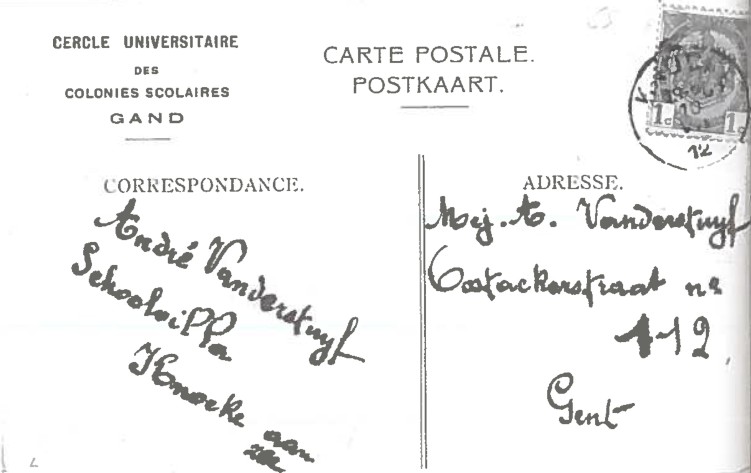 CERCLE UNIVERSITAIRE
DES
COLONIES SCOLAIRES
GAND
CARTE POSTALE.
POSTKAART.
1c 1c
12
CORRESPONDANCE.
André Vanderstuyf
Schoolvilla
Knocke aan
zee
ADRESSE.
Mej. A. Vanderstuyf
Oostackerstraat no
112
Gent